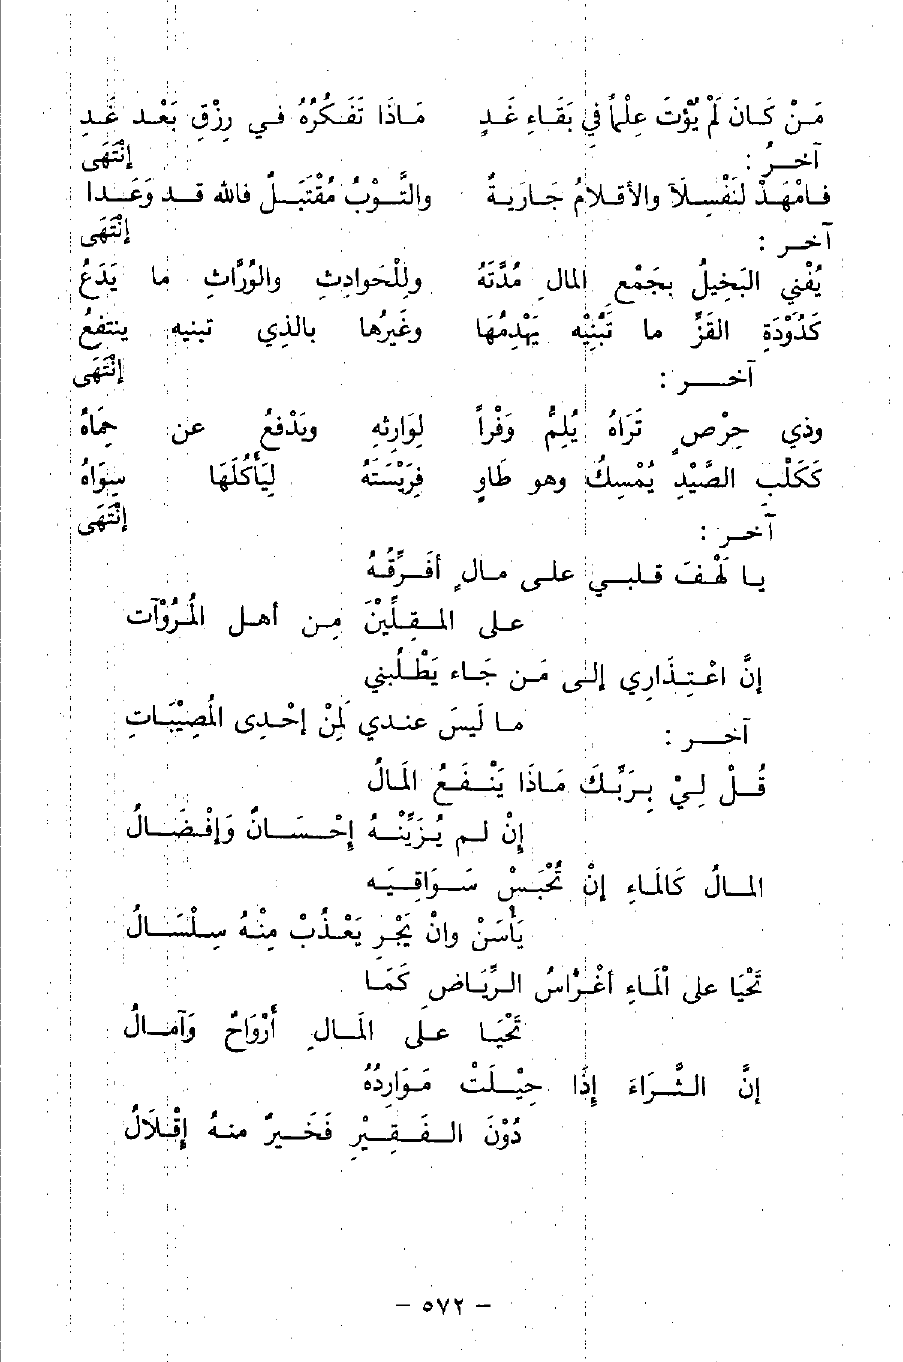 مَنْ كَانَ لَمْ يُؤْتَ عِلْماً فِي بَقَاءِ غَدٍ مَاذَا تَفَكُّرُهُ في رِزْقِ بَعْدَ غَدِ
آخرُ : إنْتَهَى
فامْهَدْ لنَفْسِكَ والأقلامُ جاريةٌ والتَّوْبُ مُقْتَبَلٌ فالله قد وَعَدا
آخر : إنْتَهَى
يُفْنِي البَخِيلُ بجَمْعِ المالِ مُدَّتَهُ ولِلْحَوادِثِ والوُرَّاثِ ما يَدَعُ
كَدُوْدَةِ القَزِّ ما تَبْنِيْهِ يَهْدِمُهَا وغَيرُها بالذي تبنيه ينتفعُ
آخر : إنْتَهَى
وذي حِرْصٍ تَرَاهُ يُلِمُّ وَفْراً لِوَارِثهِ ويَدْفعُ عن حِمَاهُ
كَكَلْبِ الصَّيْدِ يُمْسِكُ وهو طَاوٍ فِرَيْسَتَهُ لِيَأْكُلَهَا سِوَاهُ
آخر : إنْتَهَى
يا لَهْفَ قلبي على مالٍ أفَرِّقُهُ
على المقِلِّيْنَ مِن أهل المُرُوْآت
إنَّ اعْتِذَارِي إلى مَن جَاء يَطْلُبني
ما لَيسَ عندي لَمِنْ إحْدِى المُصِيْبَاتِ
آخر :
قُلْ لِيْ بِرَبِّكَ مَاذَا يَنْفَعُ المَالُ
إنْ لم يُزَيِّنْهُ إحْسَانٌ وَإفْضَالُ
المالُ كَالمَاءِ إنْ تُحْبَسْ سَوَاقِيَه
يَأْسَنْ وانْ يَجْرِ يَعْذُبْ مِنْهُ سِلْسَالُ
تَحْيَا على اْلمَاءِ أغْرَاسُ الرِّيَاضِ كَمَا
تَحْيَا على المَالِ أَرْوَاحٌ وَآمالُ
إنَّ الثَّرَاءَ إذَا حِيْلَتْ مَوَارِدُهُ
دُوْنَ الفَقِيْرِ فَخَيرٌ منهُ إقْلَالُ
- ٥٧٢ -